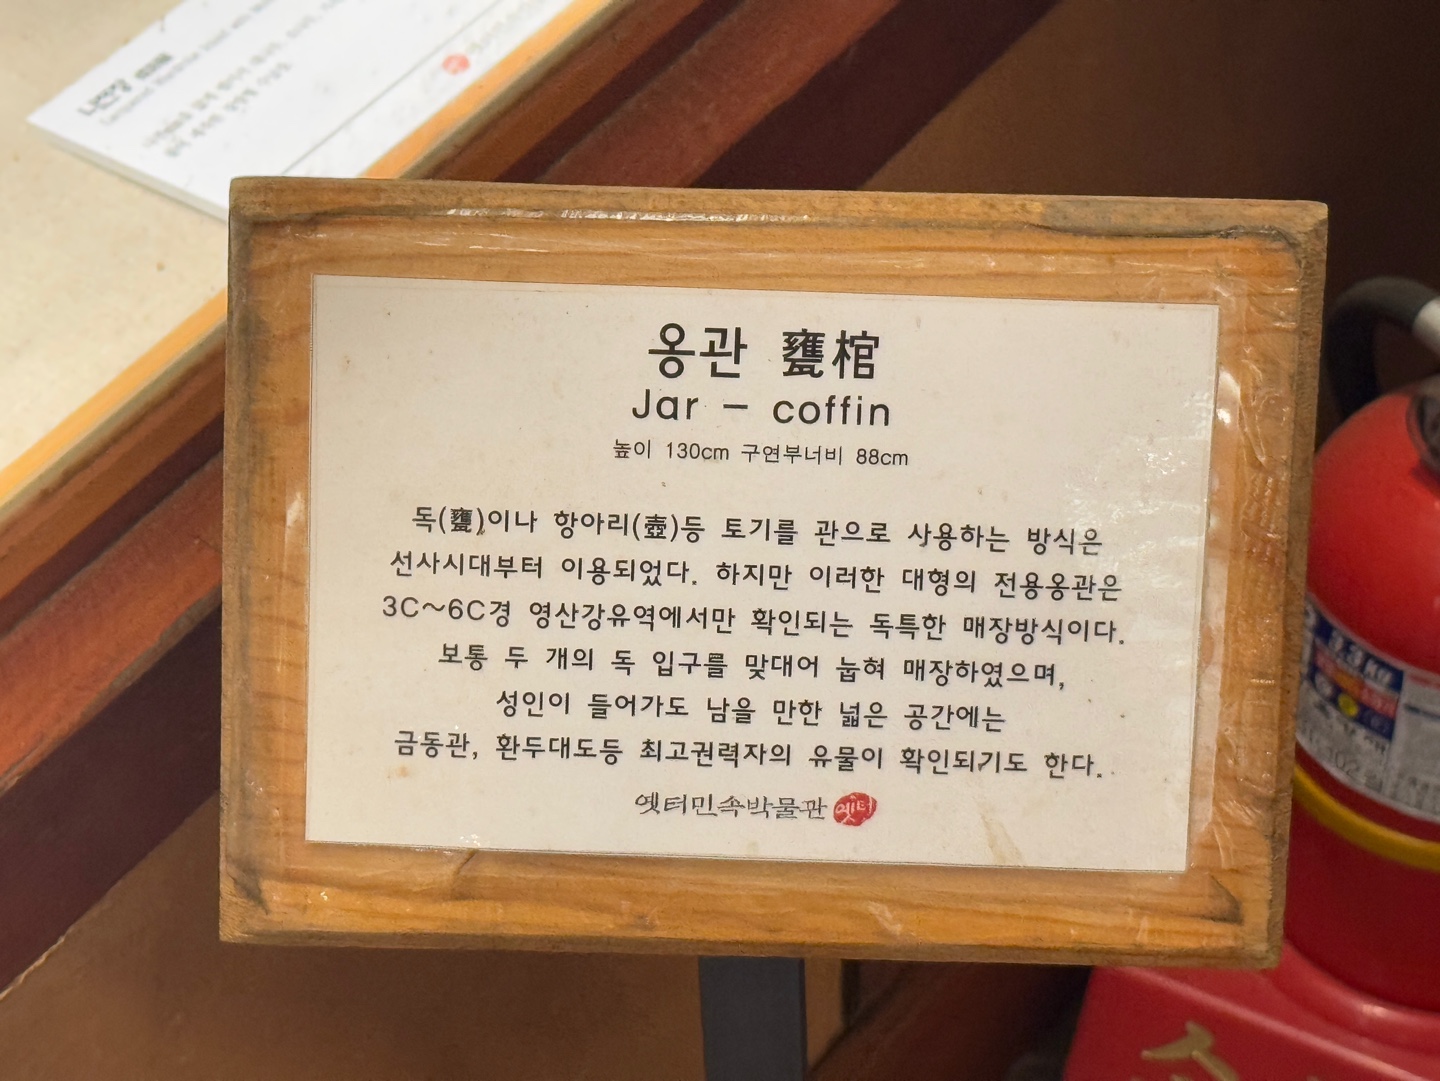 나전장 螺鈿欌
옹관 甕棺
Jar - coffin
높이 130cm 구연부너비 88cm
독(甕)이나 항아리(壺)등 토기를 관으로 사용하는 방식은
선사시대부터 이용되었다. 하지만 이러한 대형의 전용옹관은
3C~6C경 영산강유역에서만 확인되는 독특한 매장방식이다.
보통 두 개의 독 입구를 맞대어 눕혀 매장하였으며,
성인이 들어가도 남을 만한 넓은 공간에는
금동관, 환두대도등 최고권력자의 유물이 확인되기도 한다.
옛터민속박물관 옛터